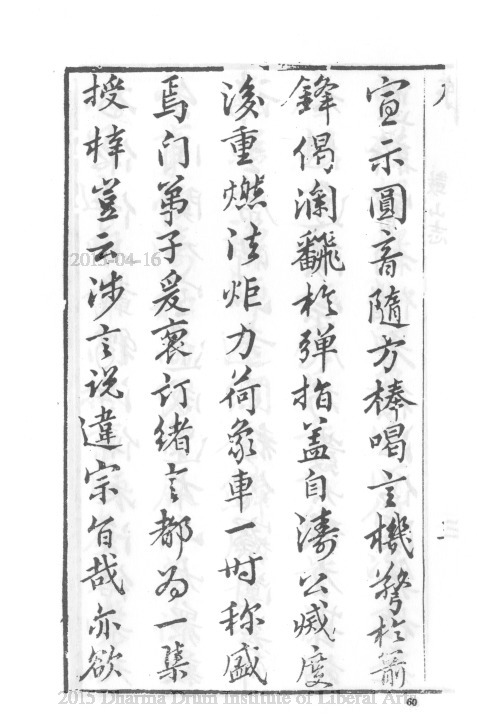 宣示圓音隨方棒喝言機弩於箭
鋒偈瀾翻於彈指蓋自濤公滅度
後重燃法炬力荷象車一时称盛
焉门第子爰裒订绪言都为一集
授梓豈云涉言说違宗旨哉亦欲
三
2015-04-16
2015 Dharma Drum Institute of Liberal Arts
60